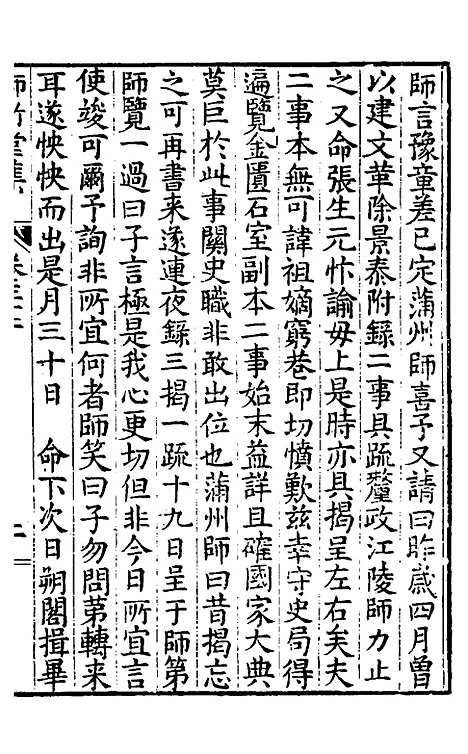 師言豫章差已定蒲州師喜予又請曰昨歲四月曾
以建文華除景泰附錄二事具疏釐政江陵師力止
之又命張生元忭諭毋上是時亦具揭呈左右矣夫
二事本無可諱祖嫡窮巷即切憤歎茲幸守史局得
遍覽金匱石室副本二事始末益詳且確國家大典
莫巨於此事關史職非敢出位也蒲州師曰昔揭忘
之可再書来遂連夜録三揭一疏十九日呈于師第
師覽一過曰子言極是我心更切但非今日所宜言
使竣可爾予詢非所宜何者師笑曰子勿問第轉来
耳遂怏怏而出是月三十日　命下次日朔閣揖畢
師竹堂集　卷三十二　二